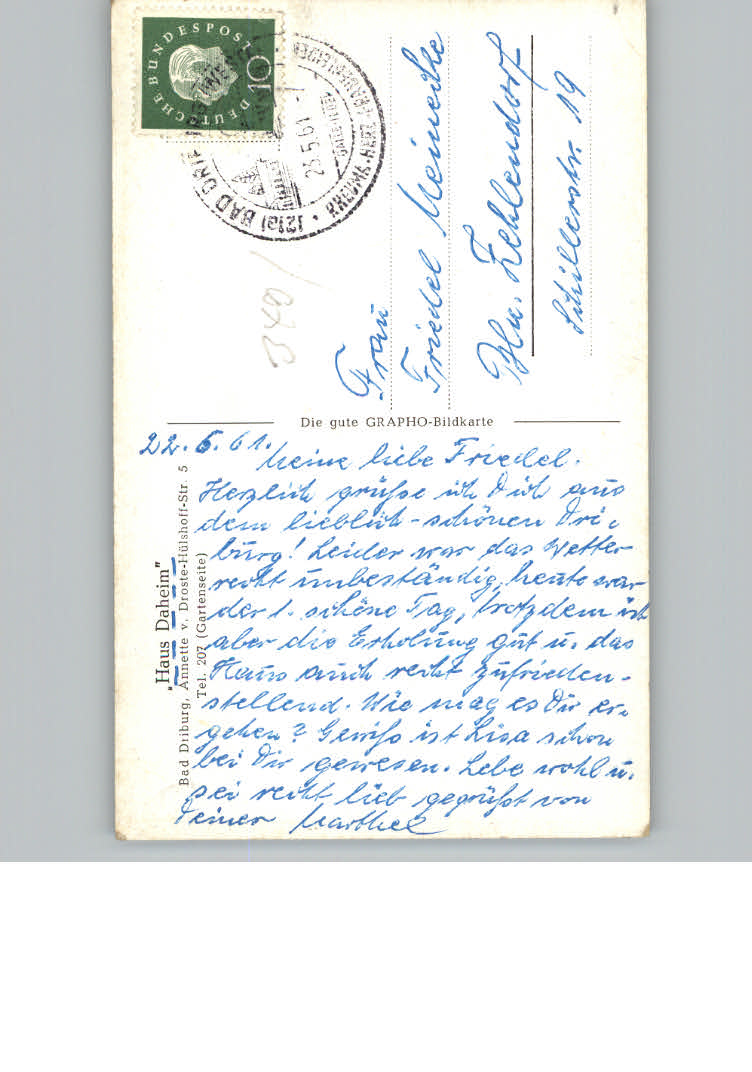 DEUTSCHE BUNDESPOST
10
(21a) BAD DRIBURG
23.5.61
RHEUMA-HERZ-FRAUENLEIDEN
340
Frau
Friedel Meinecke
Bln. Zehlendorf
Schillerstr. 19
Die gute GRAPHO-Bildkarte
"Haus Daheim"
Bad Driburg, Annette v. Droste-Hülshoff-Str. 5
Tel. 207 (Gartenseite)
22.5.61.
Meine liebe Friedel.
Herzlich grüße ich Dich aus
dem lieblich-schönen Dri-
burg! Leider war das Wetter
recht unbeständig, heute war
der 1. schöne Tag, trotzdem ist
aber die Erholung gut u. das
Haus auch recht zufrieden-
stellend. Wie mag es Dir er-
gehen? Gewiß ist Lisa schon
bei Dir gewesen. Lebe wohl u.
sei recht lieb gegrüßt von
Deiner Marthel